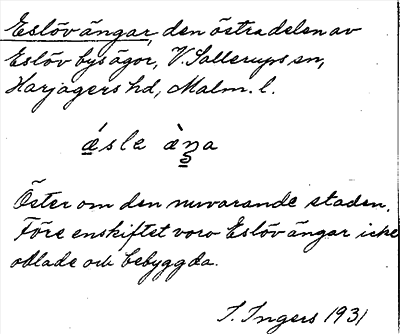 Eslöv ängar, den östra delen av
Eslöv bys ägor, V. Sallerups sn,
Harjagers hd, Malm. l.
ǽsle æ̀ŋa
Öster om den nuvarande staden.
Före enskiftet voro Eslöv ängar icke
odlade och bebyggda.
I. Ingers 1931